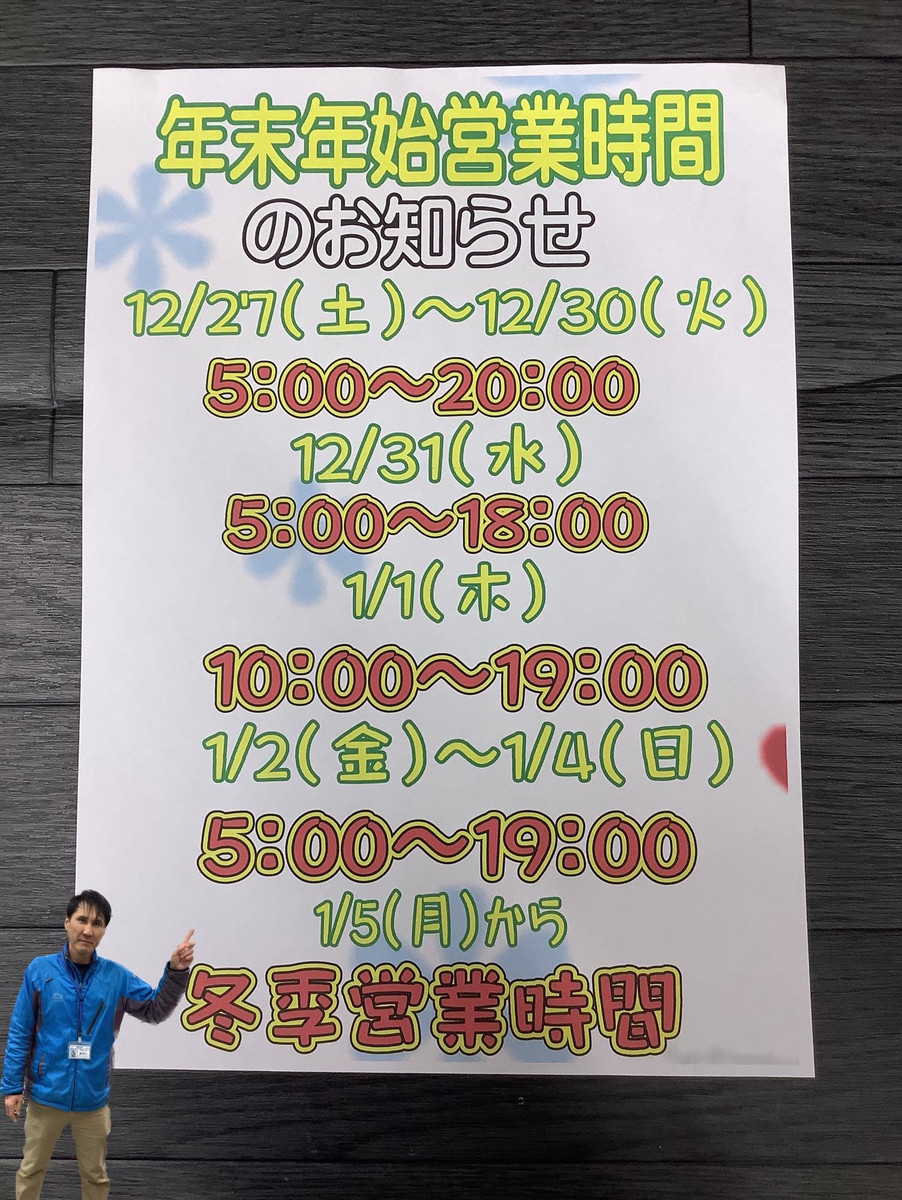 年末年始営業時間
のお知らせ
12/27(土)～12/30(火)
5:00～20:00
12/31(水)
5:00～18:00
1/1(木)
10:00～19:00
1/2(金)～1/4(日)
5:00～19:00
1/5(月)から
冬季営業時間